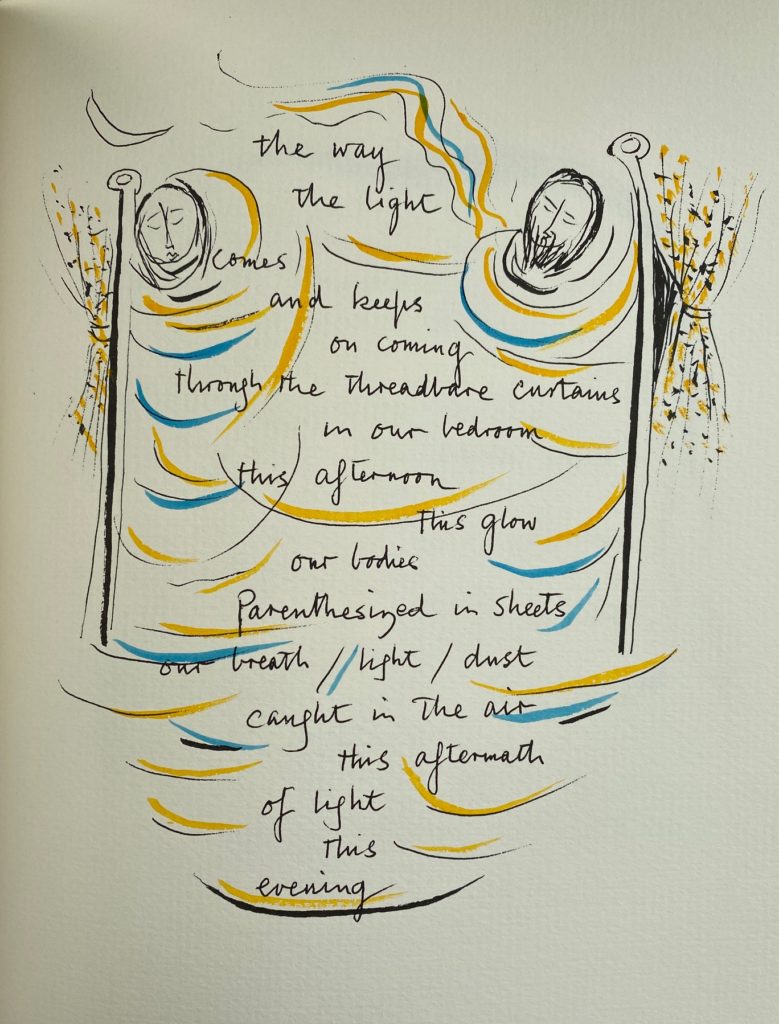 the way
the light
comes
and keeps
on coming
through the threadbare curtains
in our bedroom
this afternoon
this glow
our bodies
Parenthesized in sheets
our breath / light / dust
caught in the air
this aftermath
of light
this
evening